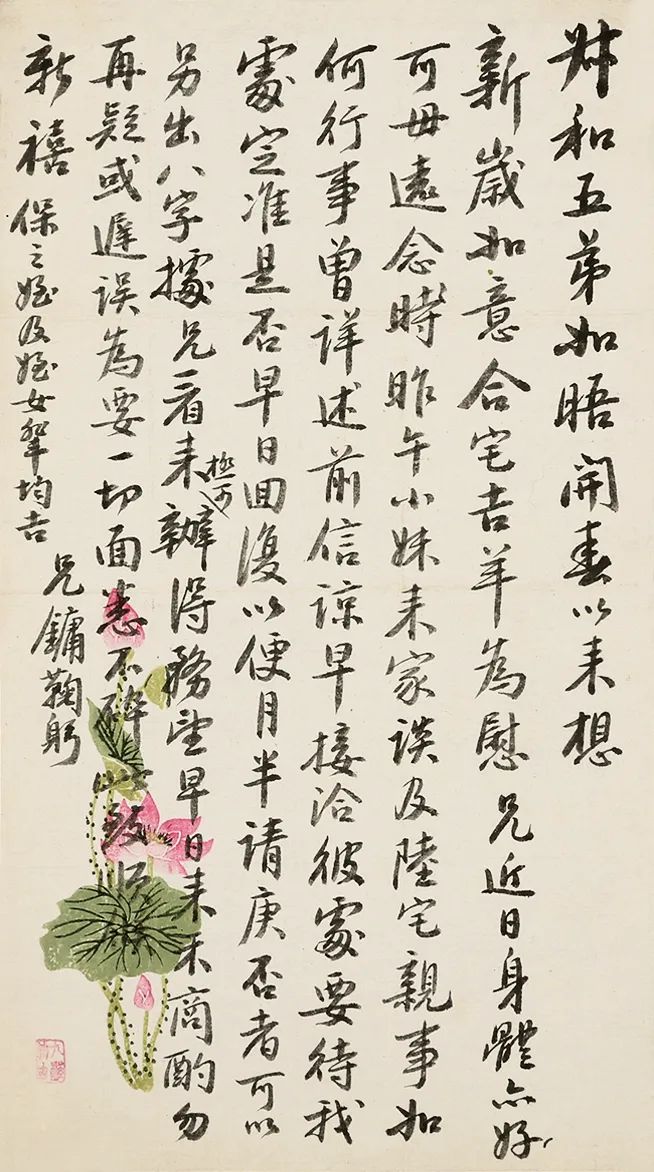 叔和五弟如晤開春以来想
新歲如意合宅吉羊為慰兄近日身體亦好
可毋遠念時昨午小妹来家談及陸宅親事如
何行事曾詳述前信諒早接洽彼處要待我
處定准是否早日回復以便月半請庚否者可以
另出八字據兄看来極可辦得務望早日来禾商酌勿
再疑或遲誤為要一切面悉不碎此致順
新禧 保之姪及姪女輩均吉
兄鏞鞠躬